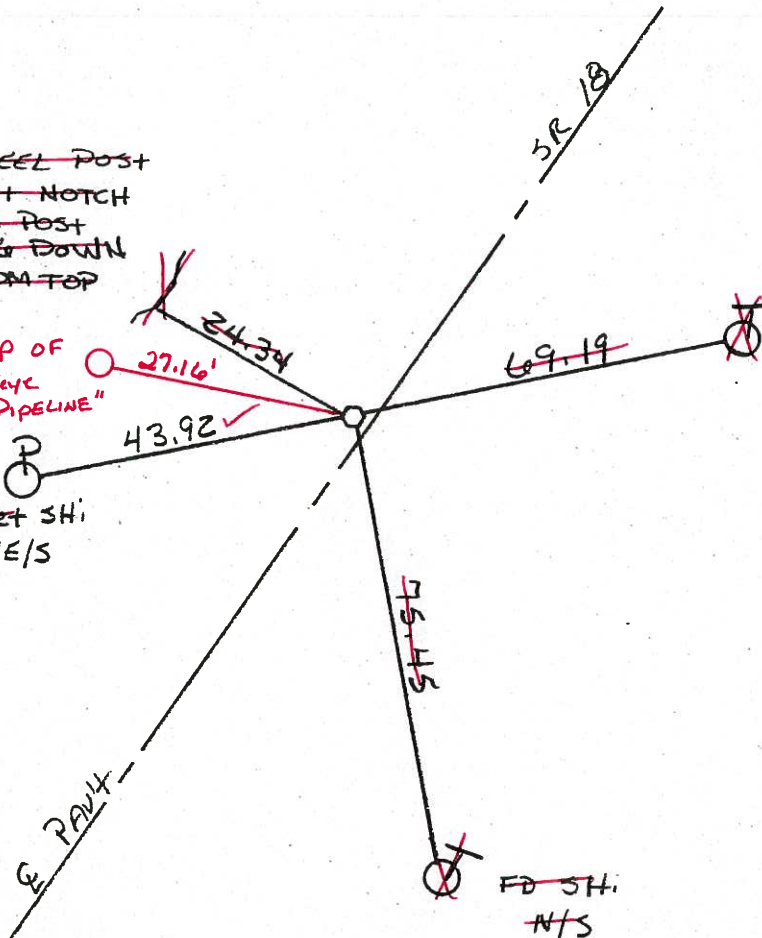 SR 18
EEL POST
+ NOTCH
POST
DOWN
OM TOP
24.34
P OF
eye
PIPELINE"
27.16'
69.19
T
43.92 ✓
P
et SHi
E/S
75.45
℄ PAV'T
T
FD SHi
N/S